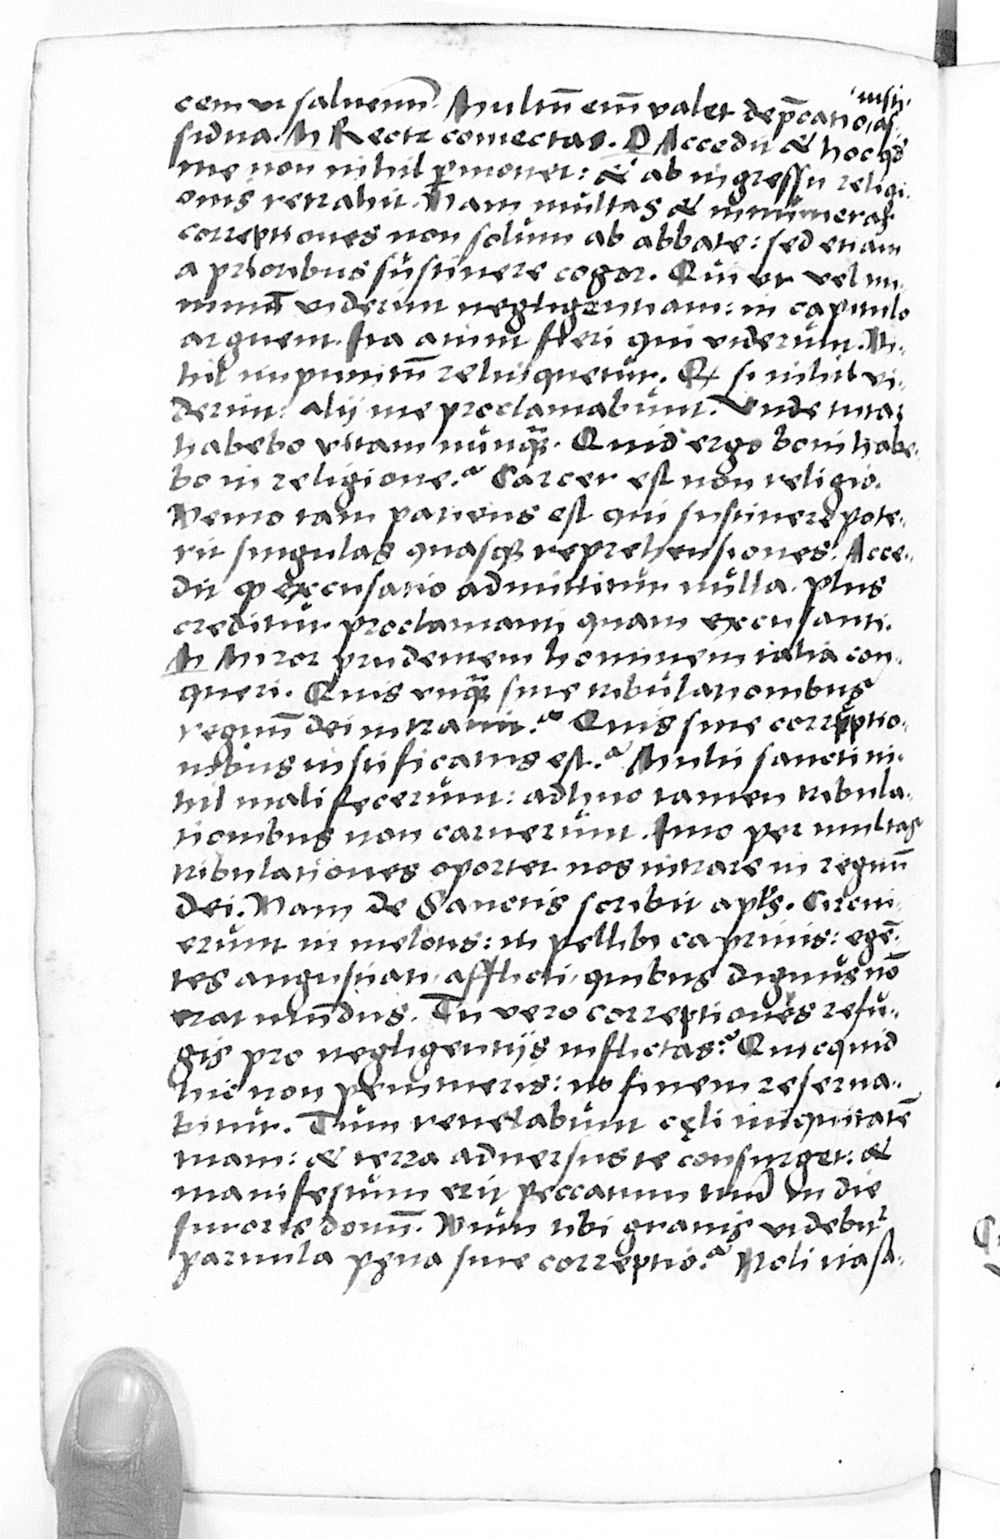 cem ut saluemī. Multū em̄ valet dep̄catio iusti as-
sidua. M Recte coniectas. D Accedit & hoc qđ
me non nihil ꝑmouet: & ab ingressu religi-
onis retrahit. Nam multas & innumeras
correptiones non solum ab abbate: sed etiam
a prioribus sustinere cogor. Qui ut vel mi-
nimā viderint negligentiam: in capitulo
arguent. Ita autem fieri qui viderunt. Ni-
hil impunitū relinquetur. Et si nihil vi-
derint: alij me proclamabunt. Unde tutā
habebo vitam nunꝙ̄. Quid ergo boni habe-
bo in religione? Carcer est non religio.
Nemo tam patiens est qui sustinere pote-
rit singulas quasqꝫ reprehensiones. Acce-
dit ꝙ excusatio admittitur nulla. Plus
creditur proclamanti quam excusanti.
M Miror prudentem hominem talia con-
queri. Quis unꝙ̄ sine tribulationibus
regnū dei intrauit? Quis sine correptio-
nibus iustificatus est? Multi sancti ni-
hil mali fecerunt: adhuc tamen tribula-
tionibus non caruerunt. Imo per multas
tribulationes oportet nos intrare in regnū
dei. Nam de Sanctis scribit apl̄s. Circui-
erunt in melotis: in pellibꝫ caprinis: egē-
tes angustiati, afflicti, quibus dignus nō
erat mūdus. Tu vero correptiones refu-
gis pro negligentijs inflictas? Quicquid
hic non punitueris: in finem reserua-
bitur. Tum reuelabunt cęli iniquitatē
tuam: & terra aduersus te consurget: &
manifestum erit peccatum tuū in die
furoris domī. Num tibi grauis videbit᷑
paruula pęna siue correptio? Noli ita sa-